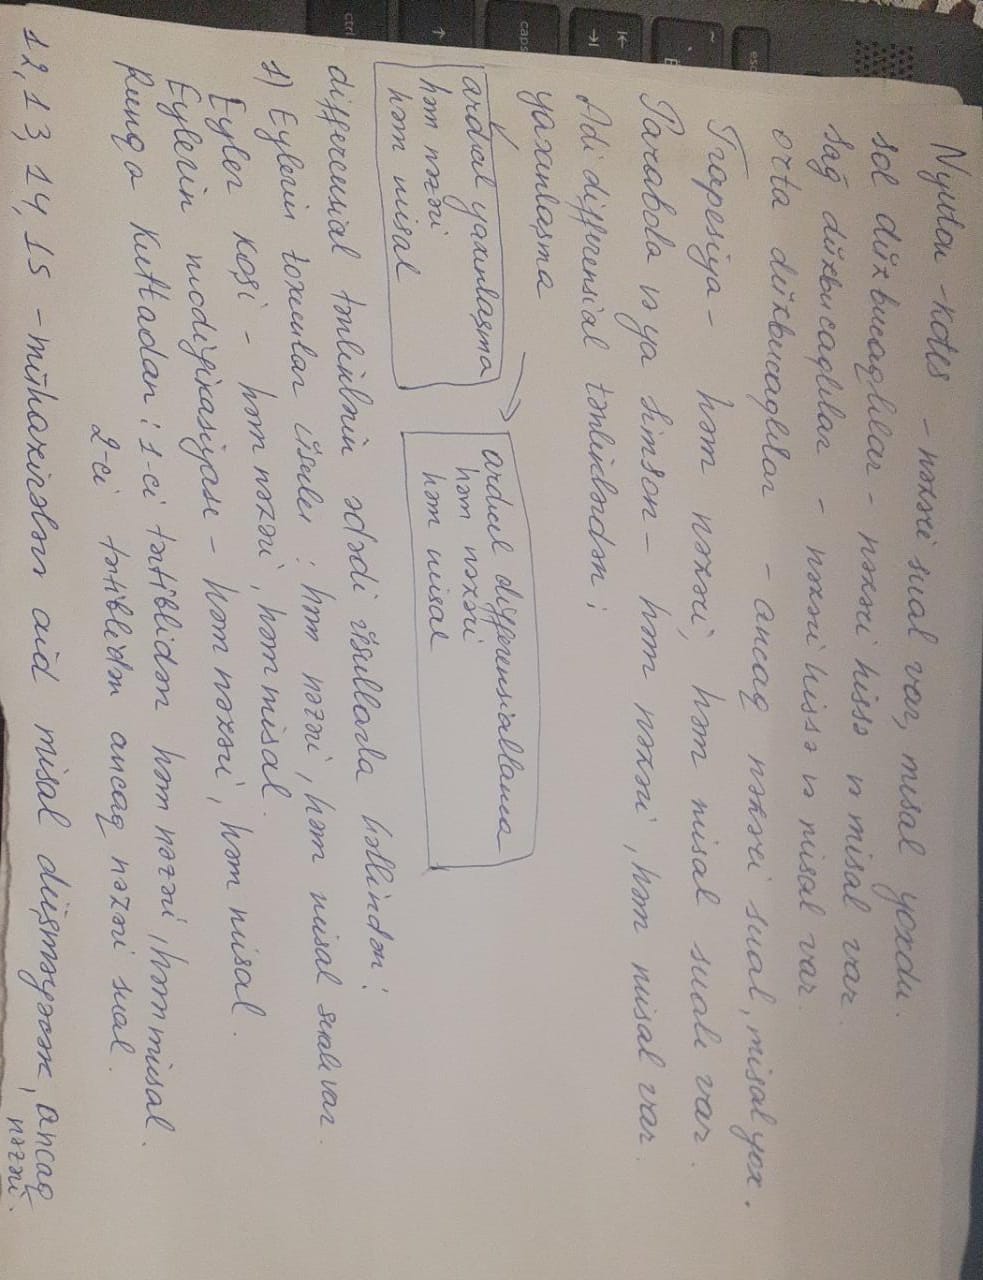 Nyuton -kotes - nəzəri sual var, misal yoxdu.
sol düzbucaqlılar - nəzəri hissə və misal var.
sağ düzbucaqlılar - nəzəri hissə və misal var.
orta düzbucaqlılar - ancaq nəzəri sual, misal yox.
Trapesiya - həm nəzəri, həm misal sualı var.
Parabola və ya Simson - həm nəzəri, həm misal var.
Adi differensial tənliklərdən;
yaxınlaşma
ardıcıl yaxınlaşma
həm nəzəri
həm misal
ardıcıl differensiallama
həm nəzəri
həm misal
differensial tənliklərin ədədi üsullarla həllindən:
1) Eylerin toxunanlar üsulu : həm nəzəri, həm misal sualı var.
Eyler koşi - həm nəzəri, həm misal.
Eylerin modifikasiyası - həm nəzəri, həm misal.
Runqa Kuttadan : 1-ci tərtiblidən həm nəzəri, həm misal.
2-ci tərtiblidən ancaq nəzəri sual.
12, 13, 14, 15 - mühazirələrə aid misal düşməyəcək, ancaq
nəzəri.